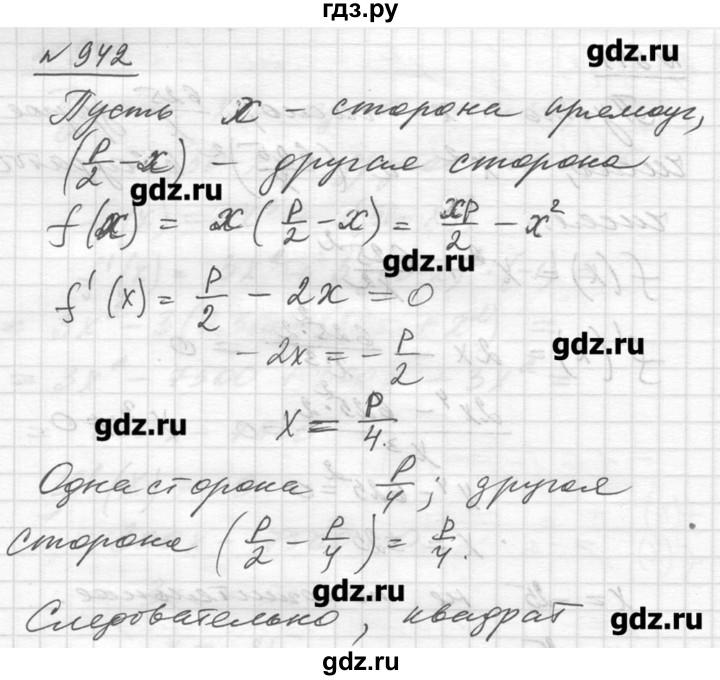 гдз.ру
№942
gdz.ru
Пусть x – сторона прямоуг,
(P/2 – x) – другая сторона
gdz.ru
f(x) = x(P/2 – x) = xP/2 – x²
gdz.ru
f'(x) = P/2 – 2x = 0
– 2x = – P/2
gdz.ru
x = P/4.
gdz.ru
Одна сторона P/4; другая
сторона (P/2 – P/4) = P/4.
gdz.ru
Следовательно, квадрат
gdz.ru
gdz.ru